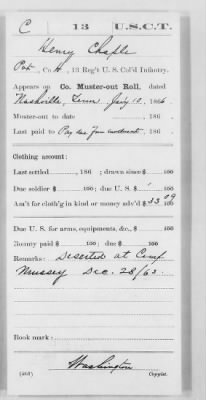 C 13 U.S.C.T.
Henry Chaple
Pvt, Co. H, 13 Reg't U.S. Col'd Infantry.
Appears on Co. Muster-out Roll, dated
Nashville, Tenn Jany 10, 1866.
Muster-out to date , 186 .
Last paid to Pay due from enrolment, 186 .
Clothing account:
Last settled , 186 ; drawn since $ 100
Due soldier $ 100; due U.S. $ 100
Am't for cloth'g in kind or money adv'd $ 33 09
Due U.S. for arms, equipments, &c., $ 100
Bounty paid $ 100; due $ 100
Remarks: Deserted at Camp
Mussey Dec. 28/63
Book mark:
Washington
Copyist.